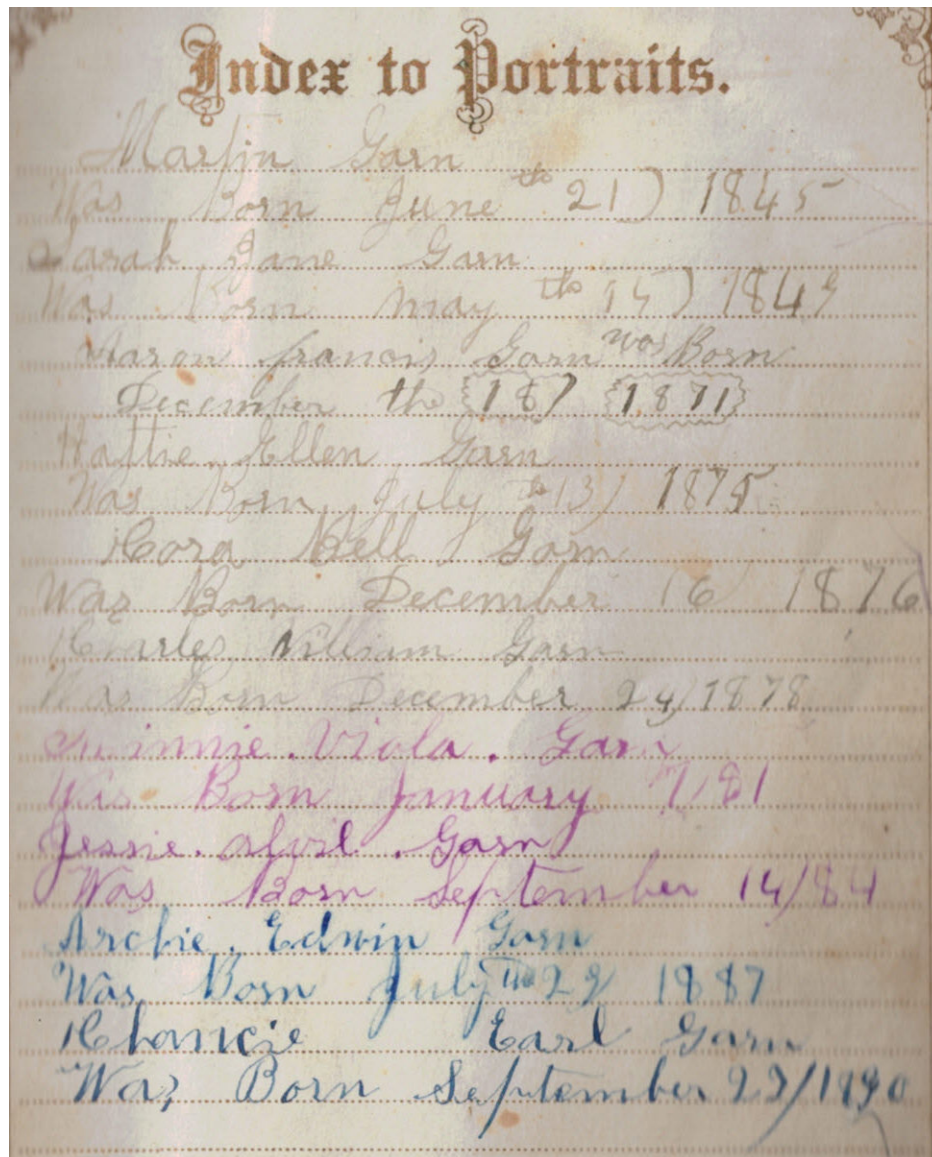 Index to Portraits.
Martin Garn
Was Born June th 21) 1845
Sarah Jane Garn
Was Born may th 15) 1849
Aaron francis Garn was Born
December the 187 1871
Hattie Ellen Garn
Was Born July th 13) 1875
Cora Bell Garn
Was Born December 16 1876
Charles William Garn
Was Born December 24/1878
Minnie. Viola. Garn
Was Born January 7/81
Jessie. April. Garn
Was Born September 14/84
Archie. Edwin Garn
Was Born July the 22 1887
Chancie Earl Garn
Was Born September 22/1890